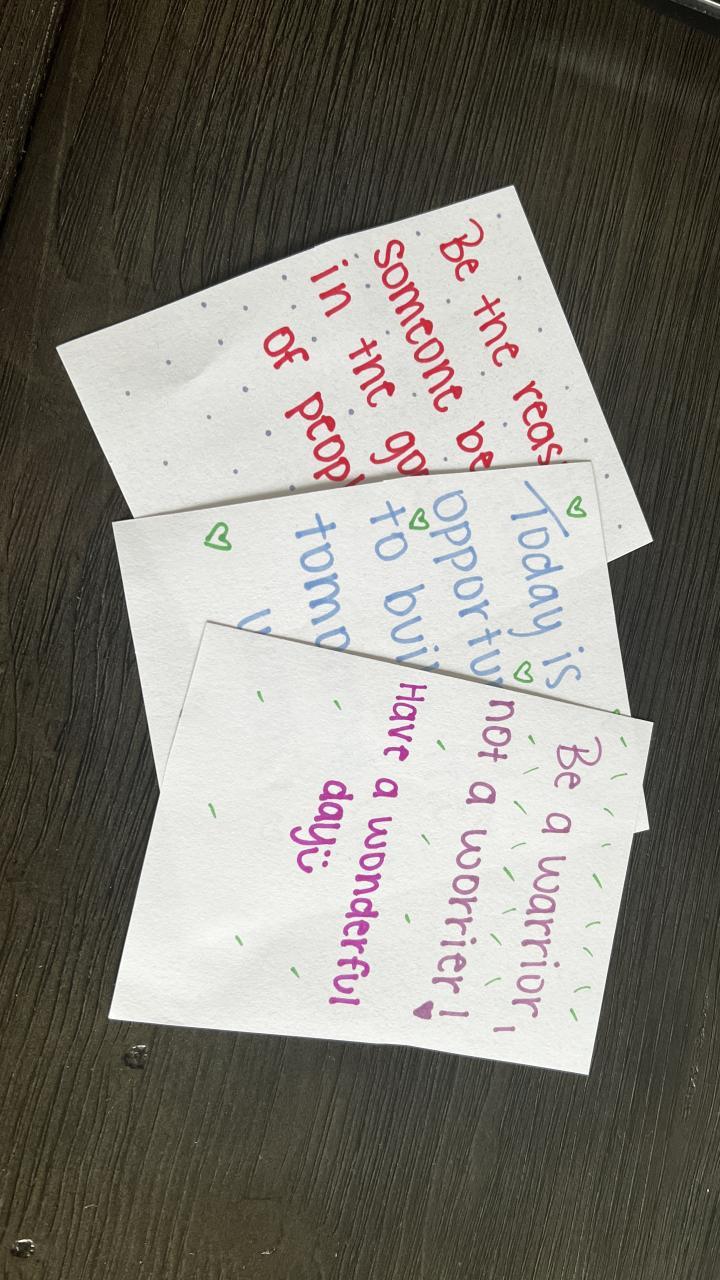 Be the reas
someone be
in the go
of peop
Today is
opportu
to bui
tomo
Be a warrior,
not a worrier!
Have a wonderful
day